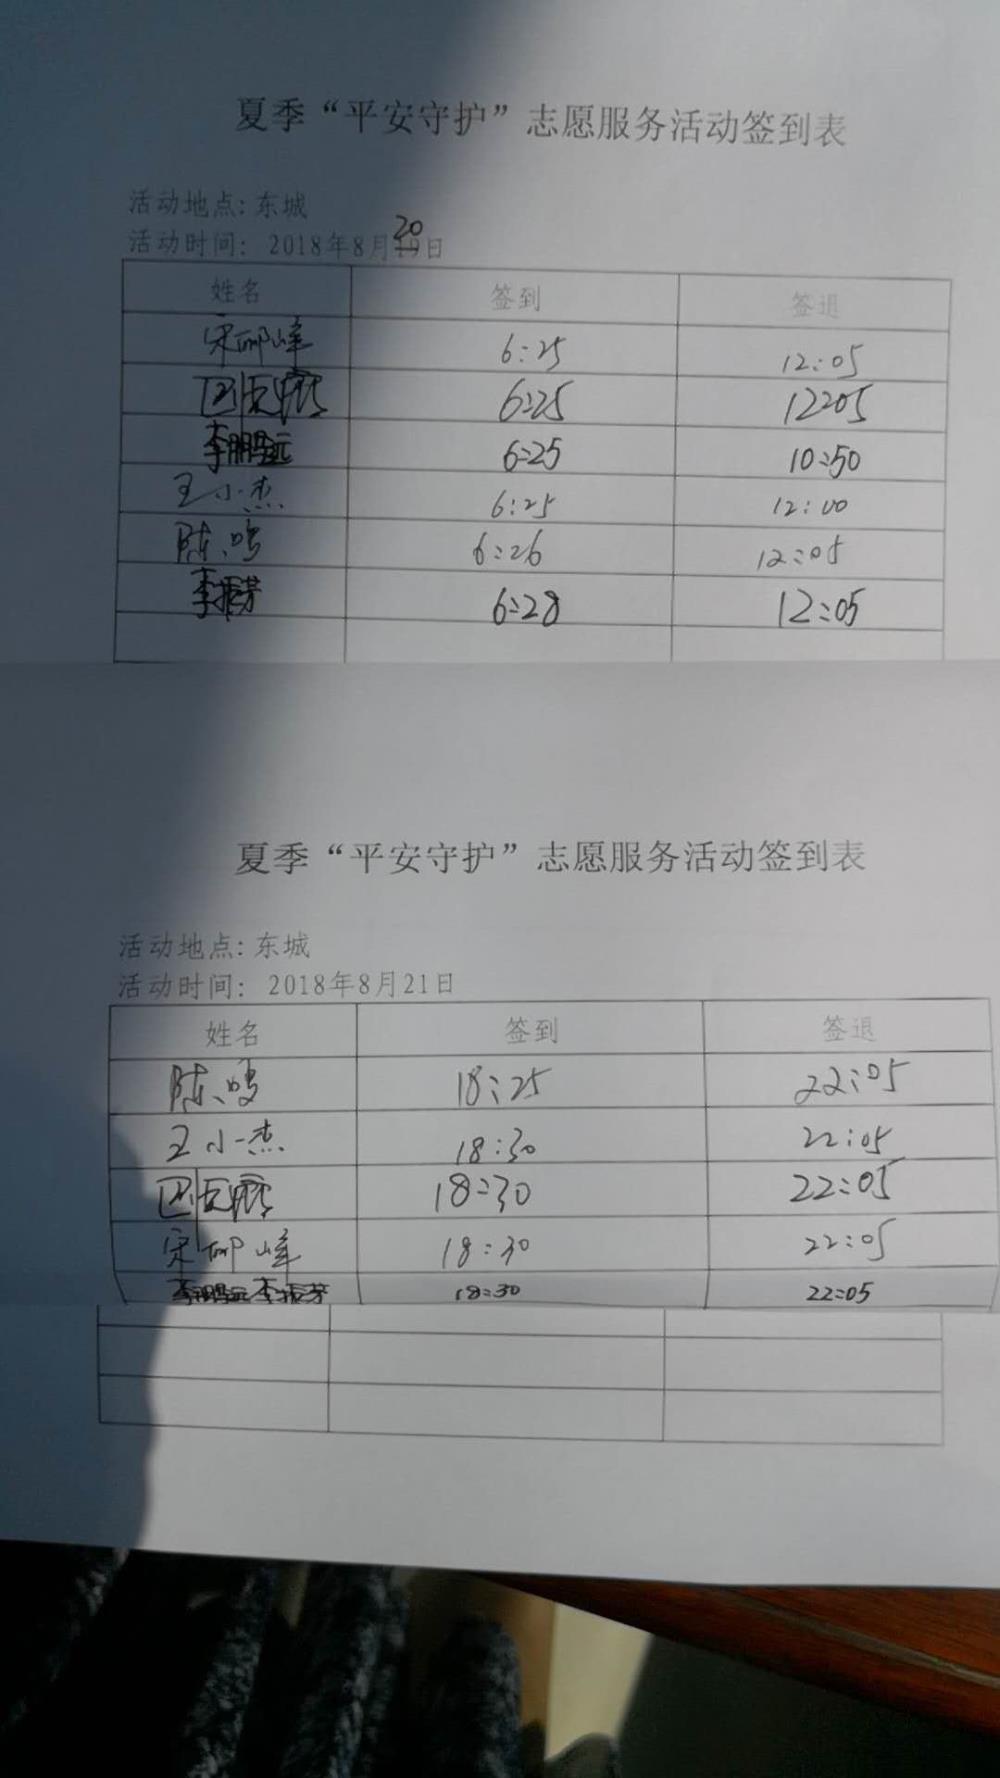 夏季“平安守护”志愿服务活动签到表
活动地点：东城
活动时间： 2018年8月20日
姓名 签到 签退
宋邴峰 6:25 12:05
6:25 12:05
李鹏远 6:25 10:50
王小杰 6:25 12:00
陈鸣 6:26 12:05
李振芳 6:28 12:05
夏季“平安守护”志愿服务活动签到表
活动地点：东城
活动时间： 2018年8月21日
姓名 签到 签退
陈鸣 18:25 22:05
王小杰 18:30 22:05
18:30 22:05
宋邴峰 18:30 22:05
李鹏远 李振芳 18:30 22:05